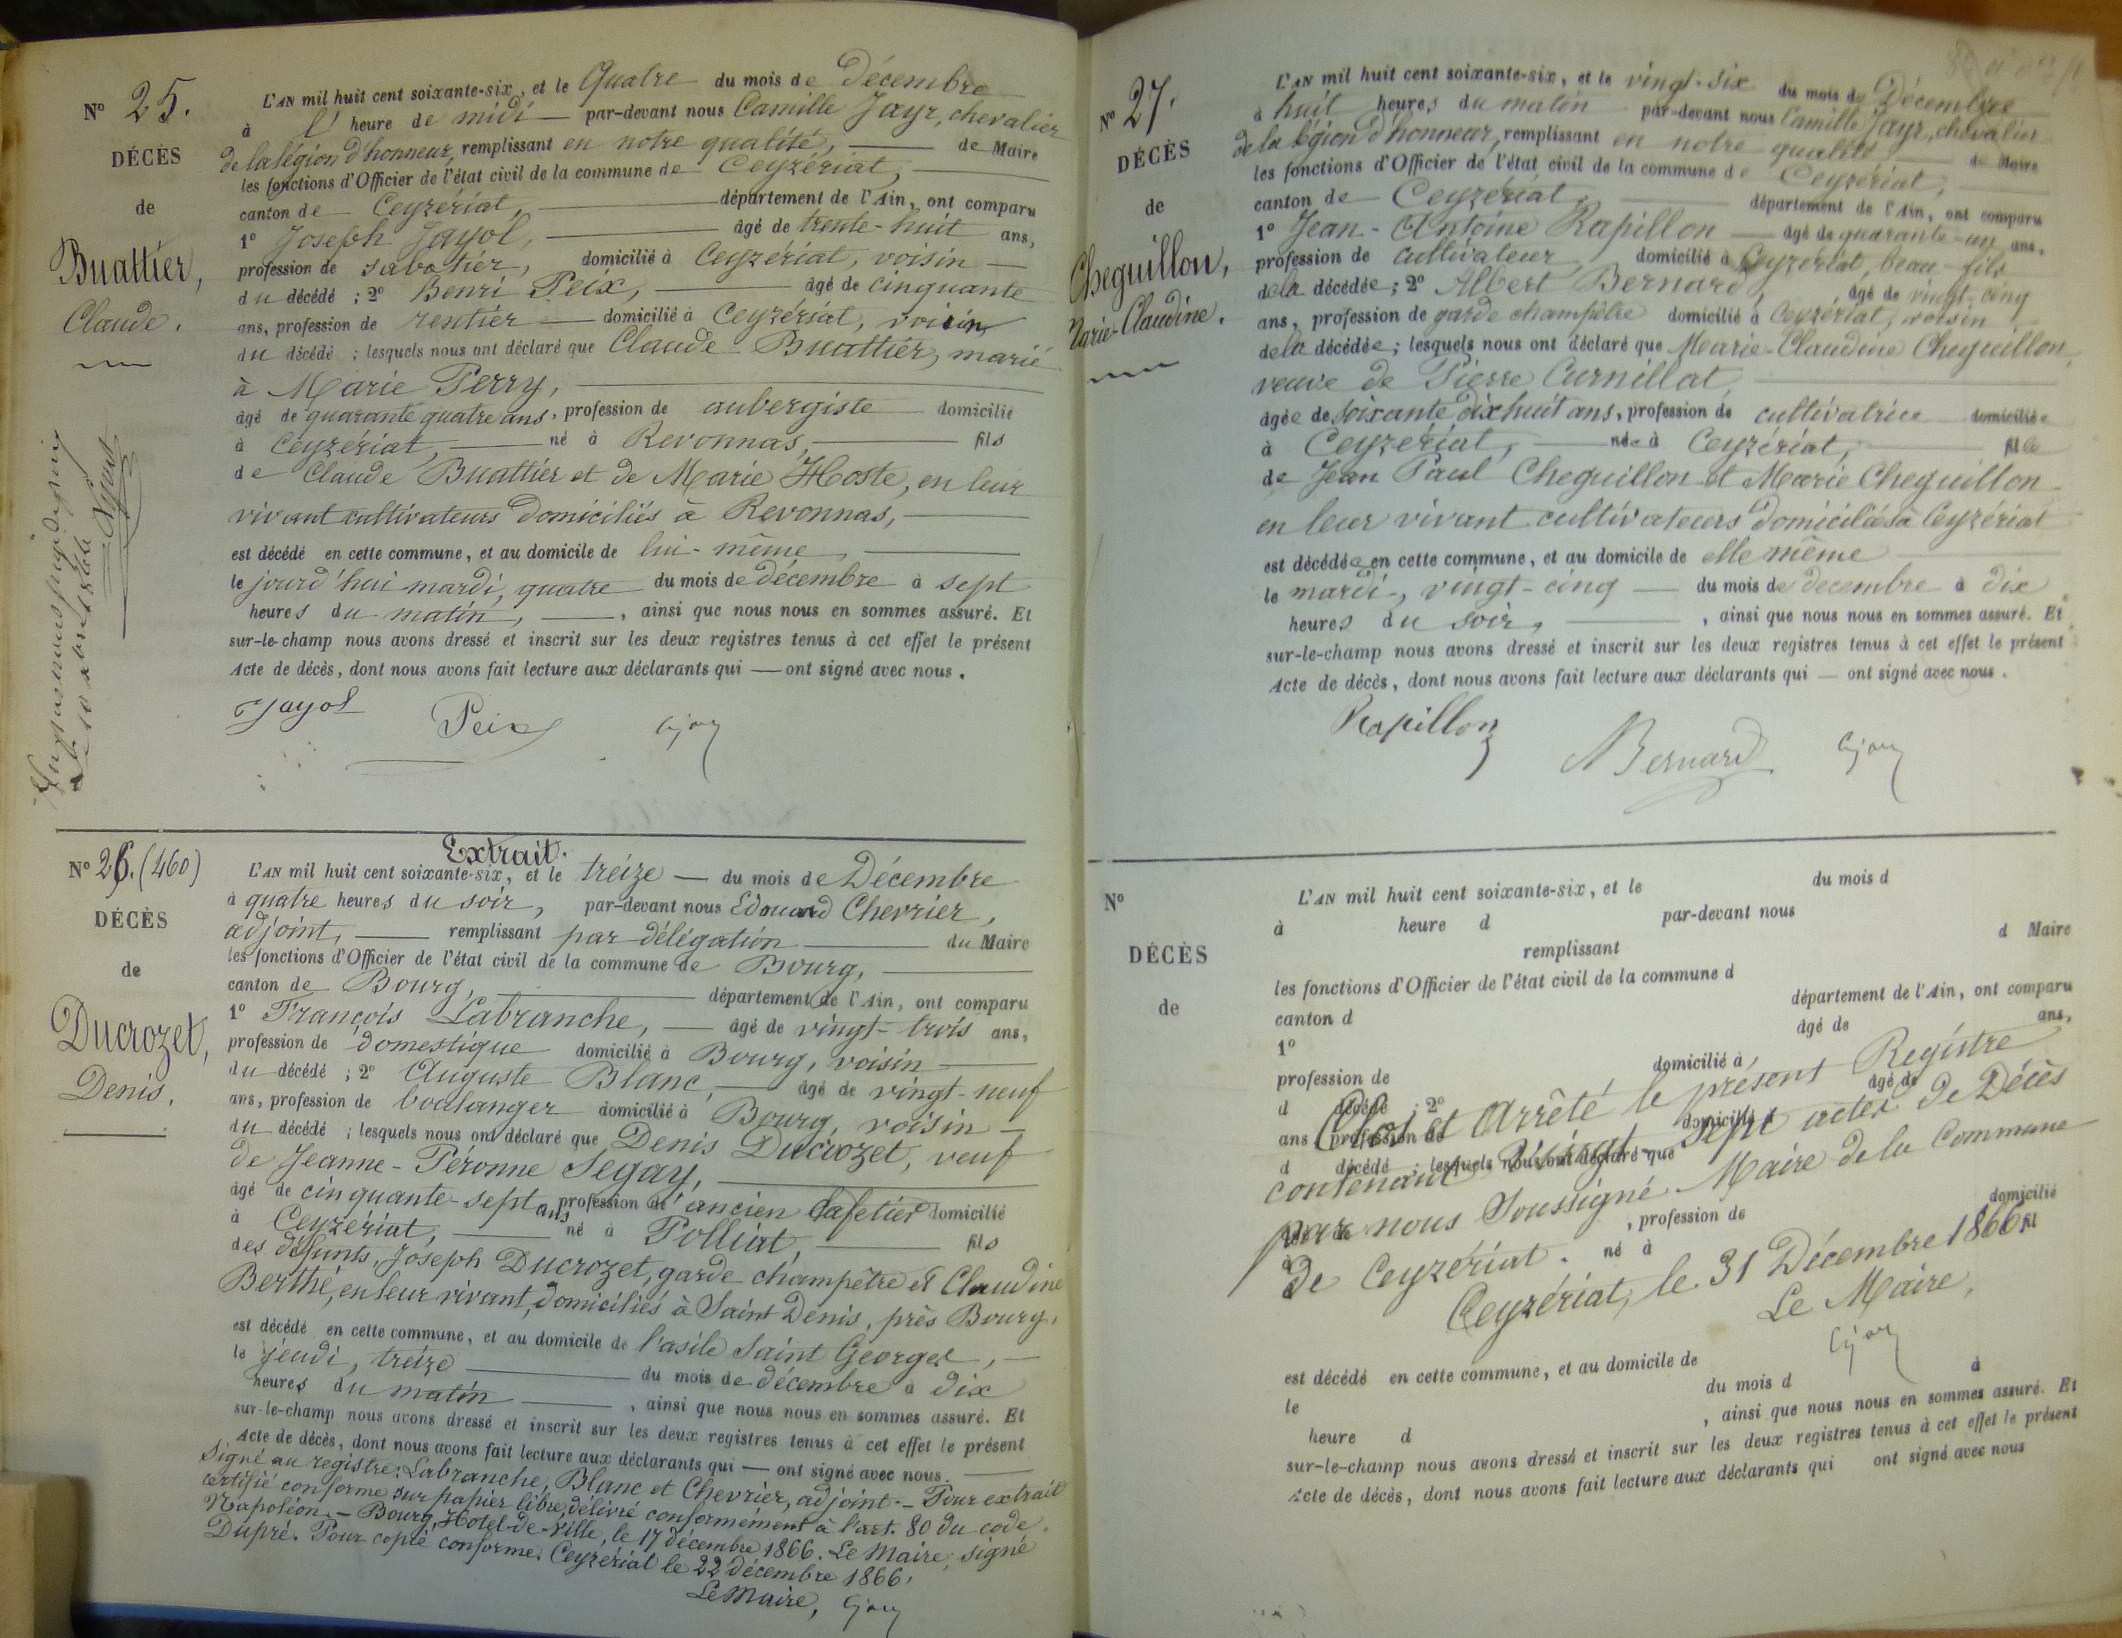 N° 25.
DÉCÈS
de
Buattier,
Claude.
L'AN mil huit cent soixante-six, et le Quatre du mois de Décembre
à l' heure de midi par-devant nous Camille Jayr, chevalier
de la légion d'honneur, remplissant en notre qualité, de Maire
les fonctions d'Officier de l'état civil de la commune de Ceyzériat,
canton de Ceyzériat, département de l'Ain, ont comparu
1° Joseph Jayol, âgé de trente-huit ans,
profession de sabotier, domicilié à Ceyzériat, voisin
du décédé ; 2° Henri Peix, âgé de cinquante
ans, profession de rentier domicilié à Ceyzériat, voisin
du décédé ; lesquels nous ont déclaré que Claude Buattier, marié
à Marie Perry,
âgé de quarante quatre ans, profession de aubergiste domicilié
à Ceyzériat, né à Revonnas, fils
de Claude Buattier et de Marie Hoste, en leur
vivant cultivateurs domiciliés à Revonnas,
est décédé en cette commune, et au domicile de lui-même,
le jourd'hui mardi, quatre du mois de décembre à sept
heures du matin, , ainsi que nous nous en sommes assuré. Et
sur-le-champ nous avons dressé et inscrit sur les deux registres tenus à cet effet le présent
Acte de décès, dont nous avons fait lecture aux déclarants qui — ont signé avec nous.
Jayol Peix CJayr
N° 26. (460)
DÉCÈS
de
Ducrozet,
Denis.
Extrait.
L'AN mil huit cent soixante-six, et le treize — du mois de Décembre
à quatre heures du soir, par-devant nous Edouard Chevrier,
adjoint, remplissant par délégation du Maire
les fonctions d'Officier de l'état civil de la commune de Bourg,
canton de Bourg, département de l'Ain, ont comparu
1° François Labranche, — âgé de vingt-trois ans,
profession de domestique domicilié à Bourg, voisin
du décédé ; 2° Auguste Blanc, âgé de vingt-neuf
ans, profession de boulanger domicilié à Bourg, voisin
du décédé ; lesquels nous ont déclaré que Denis Ducrozet, veuf
de Jeanne-Péronne Segay,
âgé de cinquante-sept ans profession d' ancien Cafetier domicilié
à Ceyzériat, né à Polliat, fils
des défunts, Joseph Ducrozet, garde champêtre et Claudine
Berthé, en leur vivant, domiciliés à Saint Denis, près Bourg,
est décédé en cette commune, et au domicile de l'asile Saint Georges,
le jeudi, treize du mois de décembre à dix
heures du matin , ainsi que nous nous en sommes assuré. Et
sur-le-champ nous avons dressé et inscrit sur les deux registres tenus à cet effet le présent
Acte de décès, dont nous avons fait lecture aux déclarants qui — ont signé avec nous.
Signé au registre: Labranche, Blanc et Chevrier, adjoint. — Pour extrait
certifié conforme sur papier libre, délivré conformément à l'art. 80 du code
Napoléon. — Bourg, Hotel-de-Ville, le 17 décembre 1866. Le Maire, signé
Dupré. Pour copie conforme: Ceyzériat le 22 décembre 1866.
Le Maire, CJayr
N° 27.
DÉCÈS
de
Cheguillon,
Marie-Claudine.
L'AN mil huit cent soixante-six, et le vingt-six du mois de Décembre
à huit heures du matin par-devant nous Camille Jayr, chevalier
de la légion d'honneur, remplissant en notre qualité de Maire
les fonctions d'Officier de l'état civil de la commune de Ceyzériat,
canton de Ceyzériat, département de l'Ain, ont comparu
1° Jean-Antoine Rapillon — âgé de quarante-un ans,
profession de cultivateur domicilié à Ceyzériat, beau-fils
de la décédée ; 2° Albert Bernard, âgé de vingt-cinq
ans, profession de garde champêtre domicilié à Ceyzériat, voisin
de la décédée ; lesquels nous ont déclaré que Marie-Claudine Cheguillon,
veuve de Pierre Curnillat,
âgée de soixante dix huit ans, profession de cultivatrice domiciliée
à Ceyzériat, née à Ceyzériat, fille
de Jean Paul Cheguillon et Marie Cheguillon
en leur vivant cultivateurs domiciliés à Ceyzériat
est décédée en cette commune, et au domicile de elle même
le mardi, vingt-cinq du mois de décembre à dix
heures du soir, , ainsi que nous nous en sommes assuré. Et
sur-le-champ nous avons dressé et inscrit sur les deux registres tenus à cet effet le présent
Acte de décès, dont nous avons fait lecture aux déclarants qui — ont signé avec nous.
Rapillon ABernard CJayr
N°
DÉCÈS
de
L'AN mil huit cent soixante-six, et le du mois d
à heure d par-devant nous
remplissant d Maire
les fonctions d'Officier de l'état civil de la commune d
canton d département de l'Ain, ont comparu
1° âgé de ans,
profession de domicilié à
d décédé ; 2° âgé de
ans, profession de domicilié à
d décédé ; lesquels nous ont déclaré que
Clos et Arrêté le présent Registre
contenant Vingt-sept actes de Décès
par nous Soussigné Maire de la Commune
de Ceyzériat.
, profession de domicilié
à né à fil
Ceyzériat, le 31 Décembre 1866
Le Maire,
CJayr
est décédé en cette commune, et au domicile de
le du mois d à
heure d , ainsi que nous nous en sommes assuré. Et
sur-le-champ nous avons dressé et inscrit sur les deux registres tenus à cet effet le présent
Acte de décès, dont nous avons fait lecture aux déclarants qui ont signé avec nous